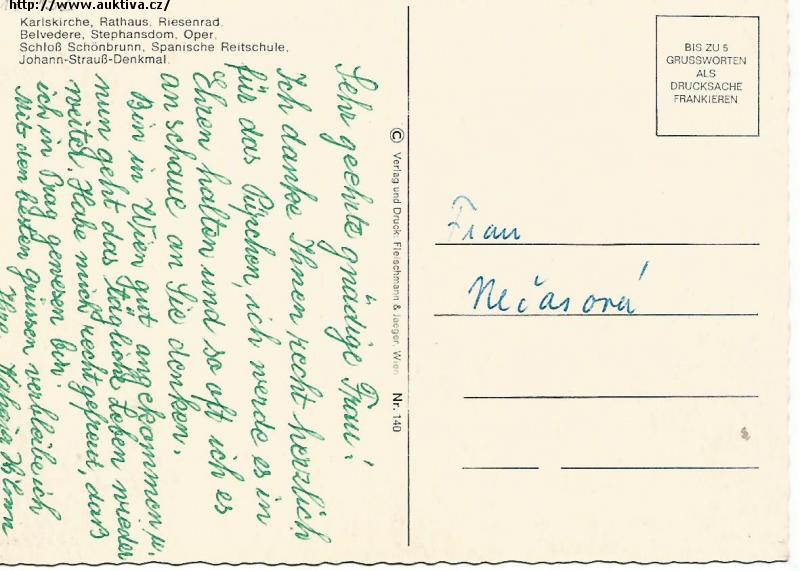 http://www.auktiva.cz/
Karlskirche, Rathaus, Riesenrad,
Belvedere, Stephansdom, Oper,
Schloß Schönbrunn, Spanische Reitschule,
Johann-Strauß-Denkmal.
Sehr geehrte gnädige Frau!
Ich danke Ihnen recht herzlich
für das Pürchen, ich werde es in
Ehren halten und so oft ich es
an schaue an Sie denken.
Bin in Wien gut angekommen u.
nun geht das tägliche Leben wieder
weiter. Habe mich recht gefreut, daß
ich in Prag gewesen bin.
Mit den besten grüssen verbleibe ich
Ihre
© Verlag und Druck: Fleischmann & Jaeger, Wien Nr. 140
BIS ZU 5
GRUSSWORTEN
ALS
DRUCKSACHE
FRANKIEREN
Frau
Nečasová